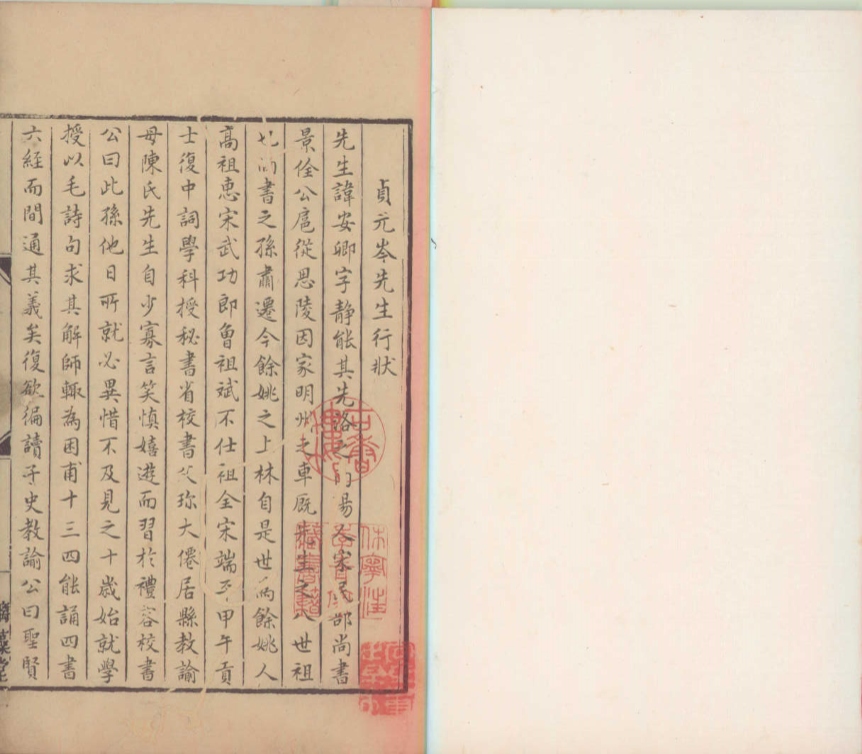 貞元岑先生行狀
先生諱安卿字靜能其先洛之陽宋民部尚書
景佺公扈從思陵因家明州之車厩先生之八世祖
也書之孫肅遷今餘姚之上林自是世為餘姚人
高祖惠宋武功郎曾祖斌不仕祖全宋端平甲午貢
士復中詞學科授秘書省校書父珎大僊居縣教諭
母陳氏先生自少寡言笑慎嬉遊而習於禮容校書
公曰此孫他日所就必異惜不及見之十歲始就學
授以毛詩句求其解師輙為困甫十三四能誦四書
六經而間通其義矣復欲徧讀子史教諭公曰聖賢